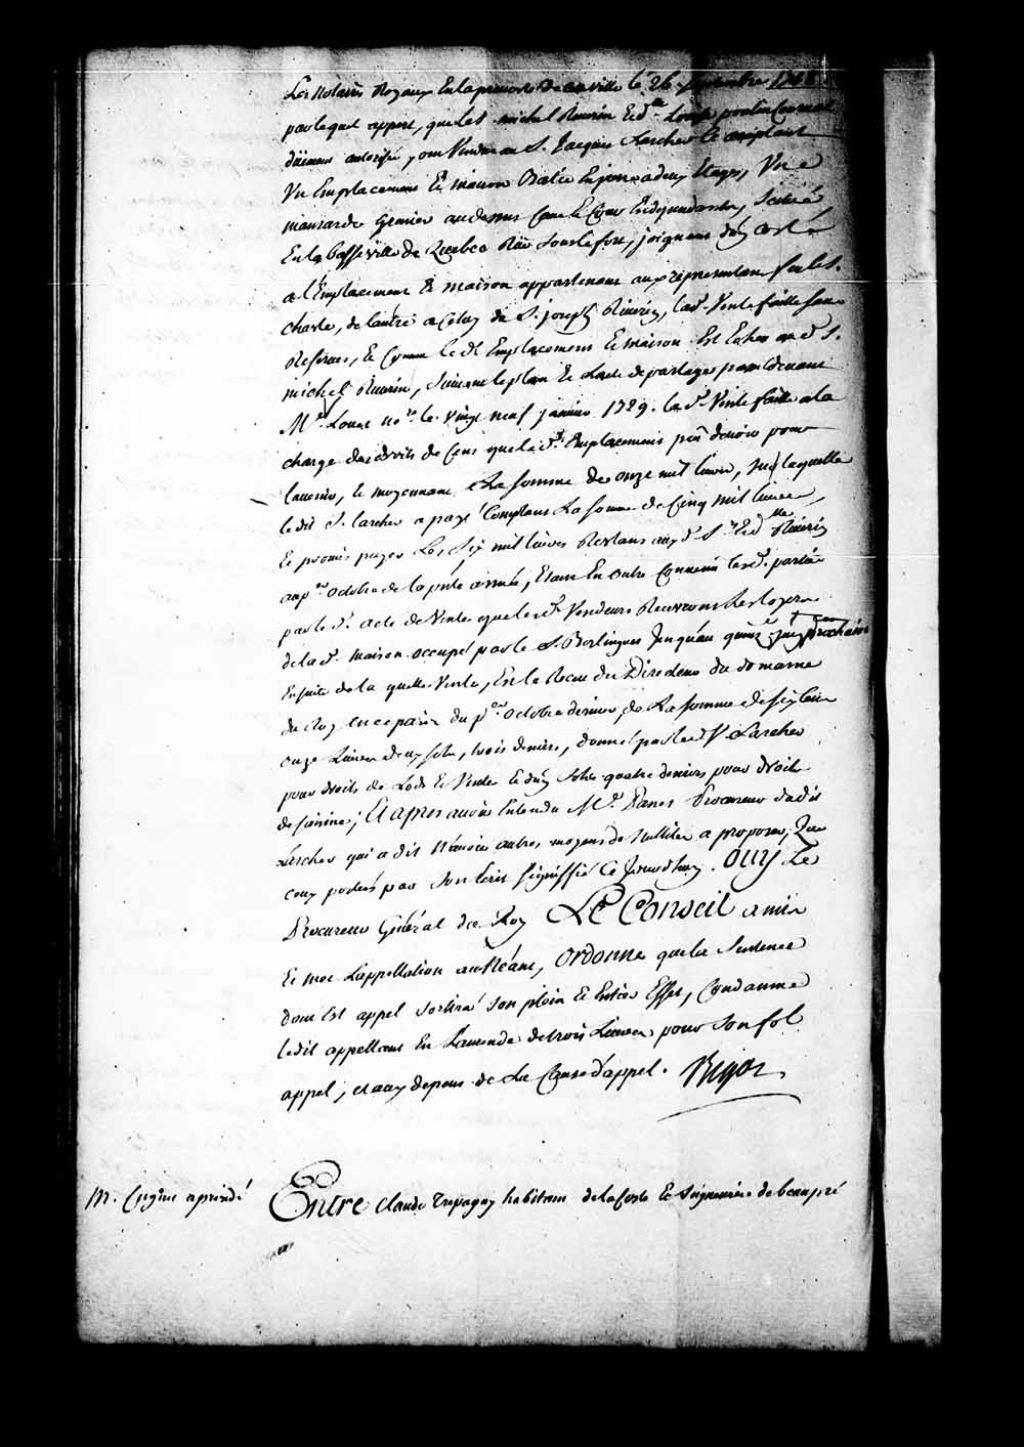 Les notaires Royaux En la prevosté de cette ville le 26 septembre
par lequel appert, que les S. michel Riverin Et d.lle
düement autorisé, ont Vendu au S. Jacques Larcher Ce acceptant
Un Emplacement Et maison Batie En pierre a deux Etages, Une
mansarde Grenier au dessus Cave Et Cour En dependantes, Scitué
En la Basse ville de Quebec Rüe Sous le fort, joignant d'un Costé
a l'Emplacement Et maison appartenant aux representans feu le S.
Charly, de l'autre a Celuy de S. joseph Riverin, lad. Vente faitte Sans
Reserve, Et Comme led. Emplacement Et maison Est Echu aud. S.
michel Riverin, Suivant le plan Et L'acte de partage passé devant
M.e Louet no.re le Vingt neuf janvier 1729. lad. Vente faitte a la
charge des droits de Cens que led. Emplacement peu devoir pour
l'avenir, Et moyennant La Somme de onze mil livres, Sur laquelle
ledit S. Larcher a payé Comptant La Somme de Cinq mil livres,
Et promis payer Les Six mil livres Restans auxd. S. Et d.lle Riverin
au p.er octobre de la p.nte année, Etant En outre Convenu Lesd. parties
par led. acte de Vente que lesd. Vendeurs Recevront Les loyers
de lad. maison occupé par le S. jusqu'au quinze prochain
Ensuite de la quelle Vente, Est le Recu du Directeur du domaine
du Roy En ce païs du p.er octobre dernier de La somme de
onze Livres deux sols, trois deniers, donné par led. S. Larcher
pour droits de Lods Et Ventes Et dix Sols quatre deniers pour droit
de saisine; Et après avoir Entendu M.e Panet Procureur dudit
Larcher qui a dit N'avoir autres moyens de Nullitez a proposer, Que
ceux portés par Son Ecrit Signiffié Ce Jourd'huy. Ouy Le
Procureur General du Roy Le Conseil a mis
Et met L'appellation au Néant, Ordonne que la Sentence
dont Est appel Sortira Son plein Et Entier Effet, Condamne
ledit appellant En L'amende de trois Livres pour Son fol
appel, et aux depens de La Cause d'appel. Bigot
M. Cugnet a presidé
Entre Claude Trepagny habitant de la Coste Et Seigneurie de beaupré